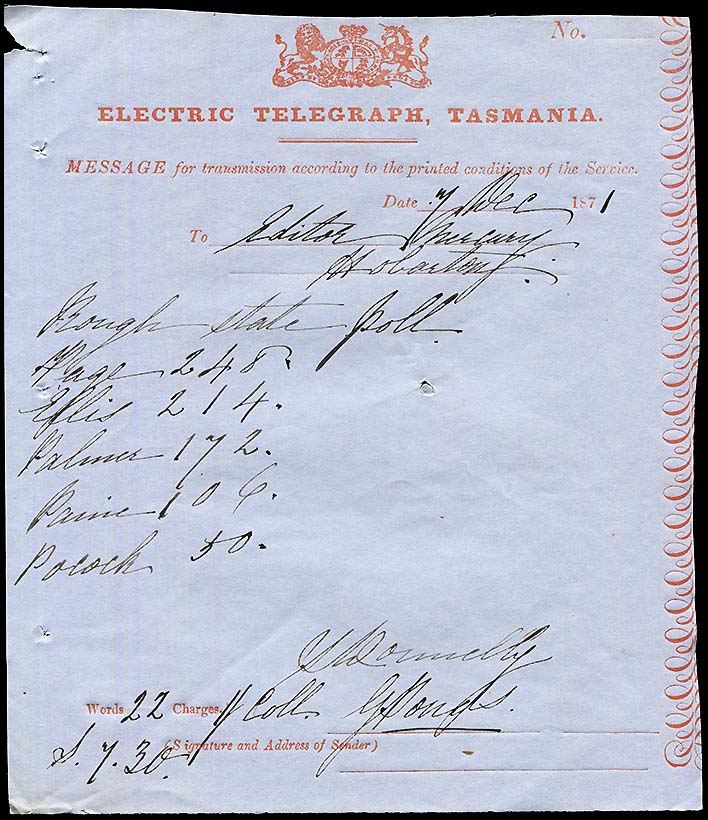 No.
ELECTRIC TELEGRAPH, TASMANIA.
MESSAGE for transmission according to the printed conditions of the Service.
Date 7 Dec 1871
To Editor Mercury
Hobarton
Rough state poll
Page 248.
Ellis 214.
Palmer 172.
Paine 106.
Pocock 50.
Donnelly
Words 22 Charges. 1/ Coll.
(Signature and Address of Sender)
S. 7. 30.